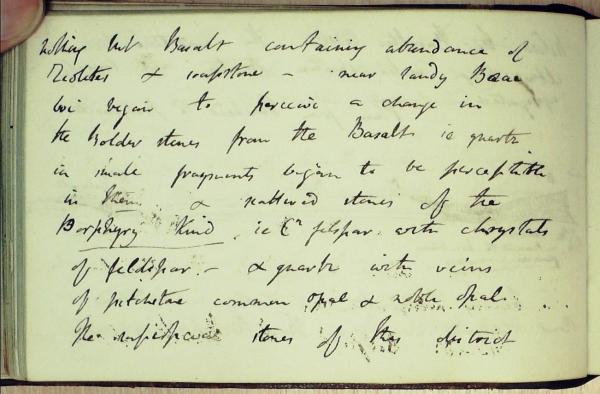 nothing but Basalt containing abundance of
Zeolites & soapstone - near Sandy Brae
we began to perceive a change in
the bolder stones from the Basalt ie quartz
in small fragments began to be perceptible
in them & scattered stones of the
Porphyry Kind. ie Cn felspar with chrystals
of feldspar - & quartz with veins
of pitchstone common opal & noble opal
The stones of this district